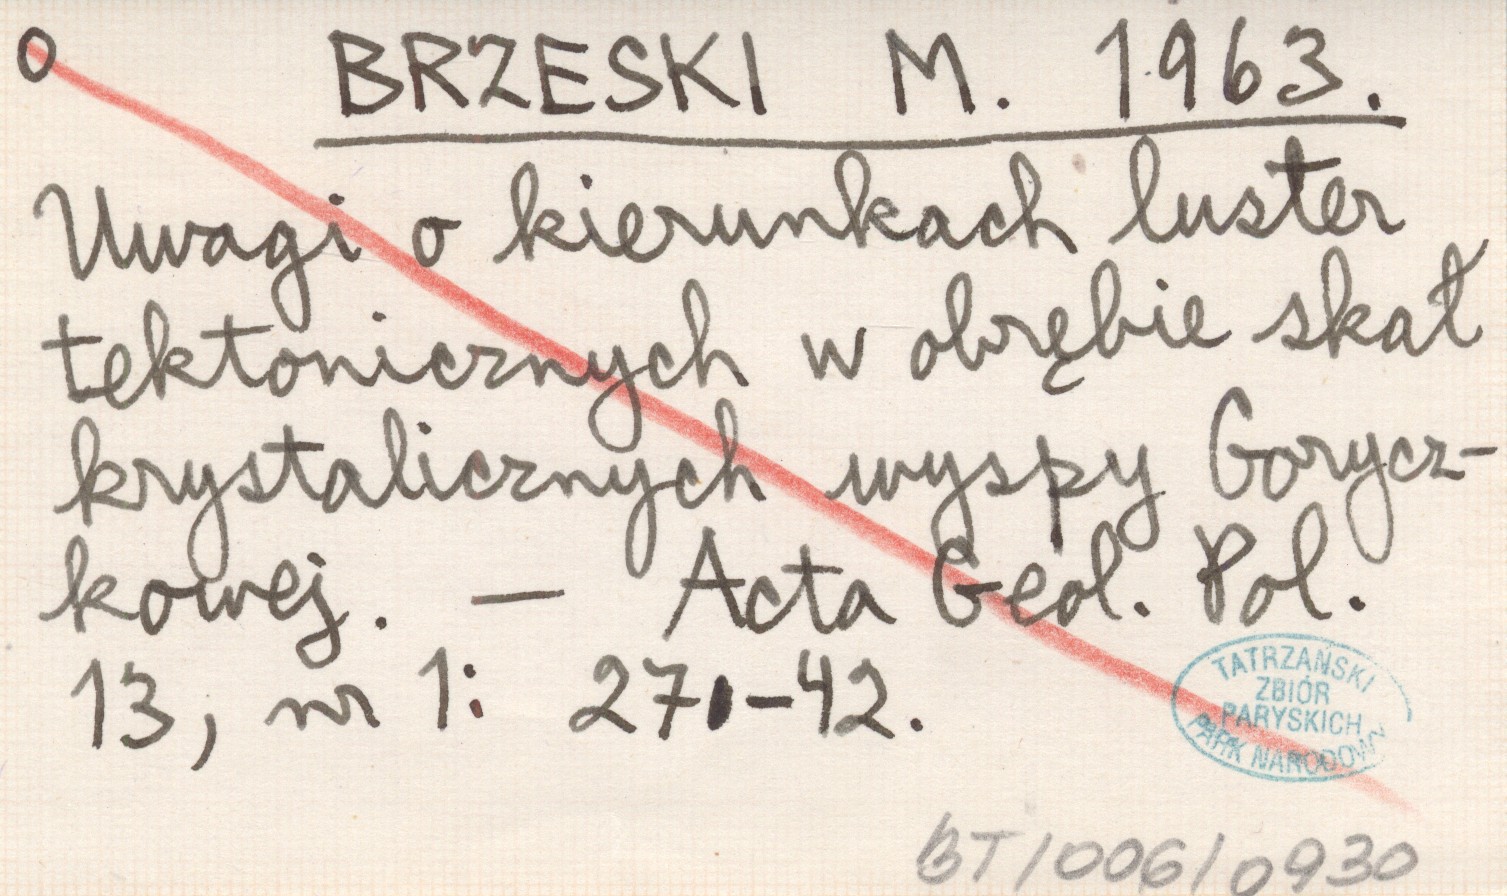 o BRZESKI M. 1963.
Uwagi o kierunkach luster
tektonicznych w obrębie skał
krystalicznych wyspy Gorycz-
kowej. — Acta Geol. Pol.
13, nr 1: 27-42.
TATRZAŃSKI
ZBIÓR
PARYSKICH
PARK NARODOWY
BT/006/0930